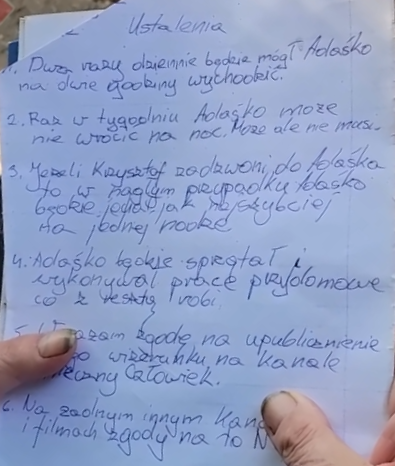 Ustalenia
1. Dwa razy dziennie będzie mógł Adaśko
na dwie godziny wychodzić.
2. Raz w tygodniu Adaśko może
nie wrócić na noc. Może ale nie musi.
3. Jeżeli Krzysztof zadzwoni do Adaśka
to w nagłym przypadku Adaśko
będzie jechał jak najszybciej
na jednej nodze
4. Adaśko będzie sprzątał i
wykonywał prace przydomowe
co z resztą robi.
5. zgodę na upublicznienie
wizerunku na kanale
Całowiek.
6. Na żadnym innym
i filmach zgody na to